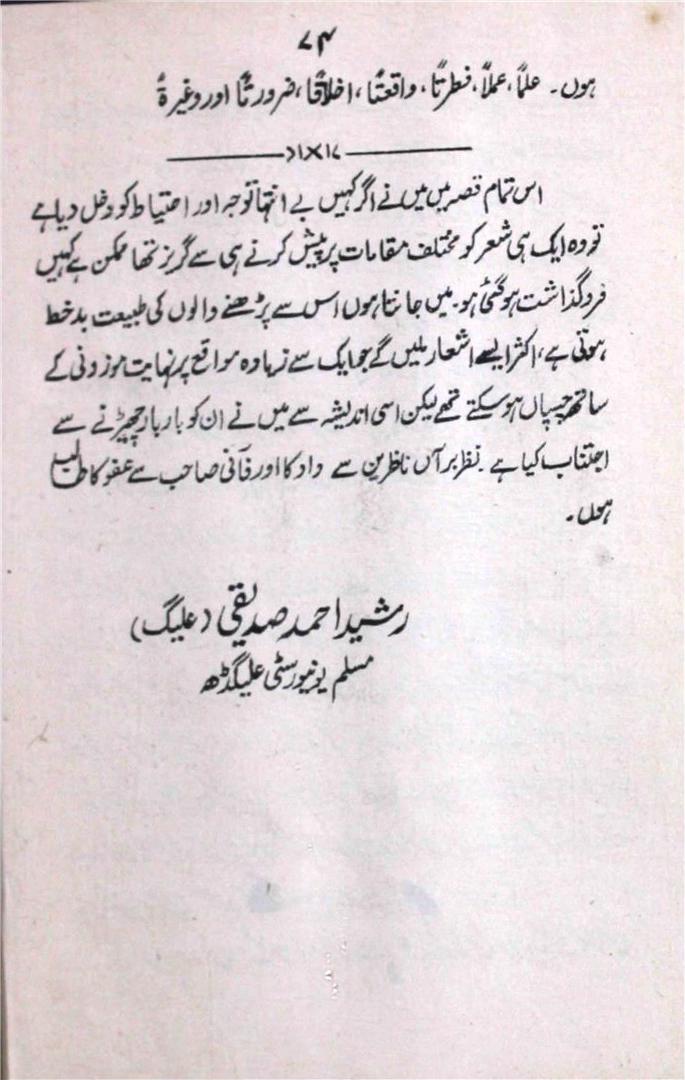 ۷۴
ہوں۔ علماً، عملاً، فطرتاً، واقعتاً، اخلاقاً، ضرورتاً اور وغیرۃً
اس تمام قصر میں میں نے اگر کہیں بے انتہا توجہ اور احتیاط کو دخل دیا ہے
تو وہ ایک ہی شعر کو مختلف مقامات پر پیش کرنے ہی سے گریز تھا ممکن ہے کہیں
فروگذاشت ہو گئی ہو۔ میں جانتا ہوں اس سے پڑھنے والوں کی طبیعت بدخط
ہوتی ہے، اکثر ایسے اشعار ملیں گے جو ایک سے زیادہ مواقع پر نہایت موزونی کے
ساتھ چسپاں ہو سکتے تھے لیکن اسی اندیشہ سے میں نے ان کو بار بار چھیڑنے سے
اجتناب کیا ہے۔ نظر برآں ناظرین سے داد کا اور فانی صاحب سے عفو کا طالب
ہوں۔
رشید احمد صدیقی (علیگ)
مسلم یونیورسٹی علیگڑھ